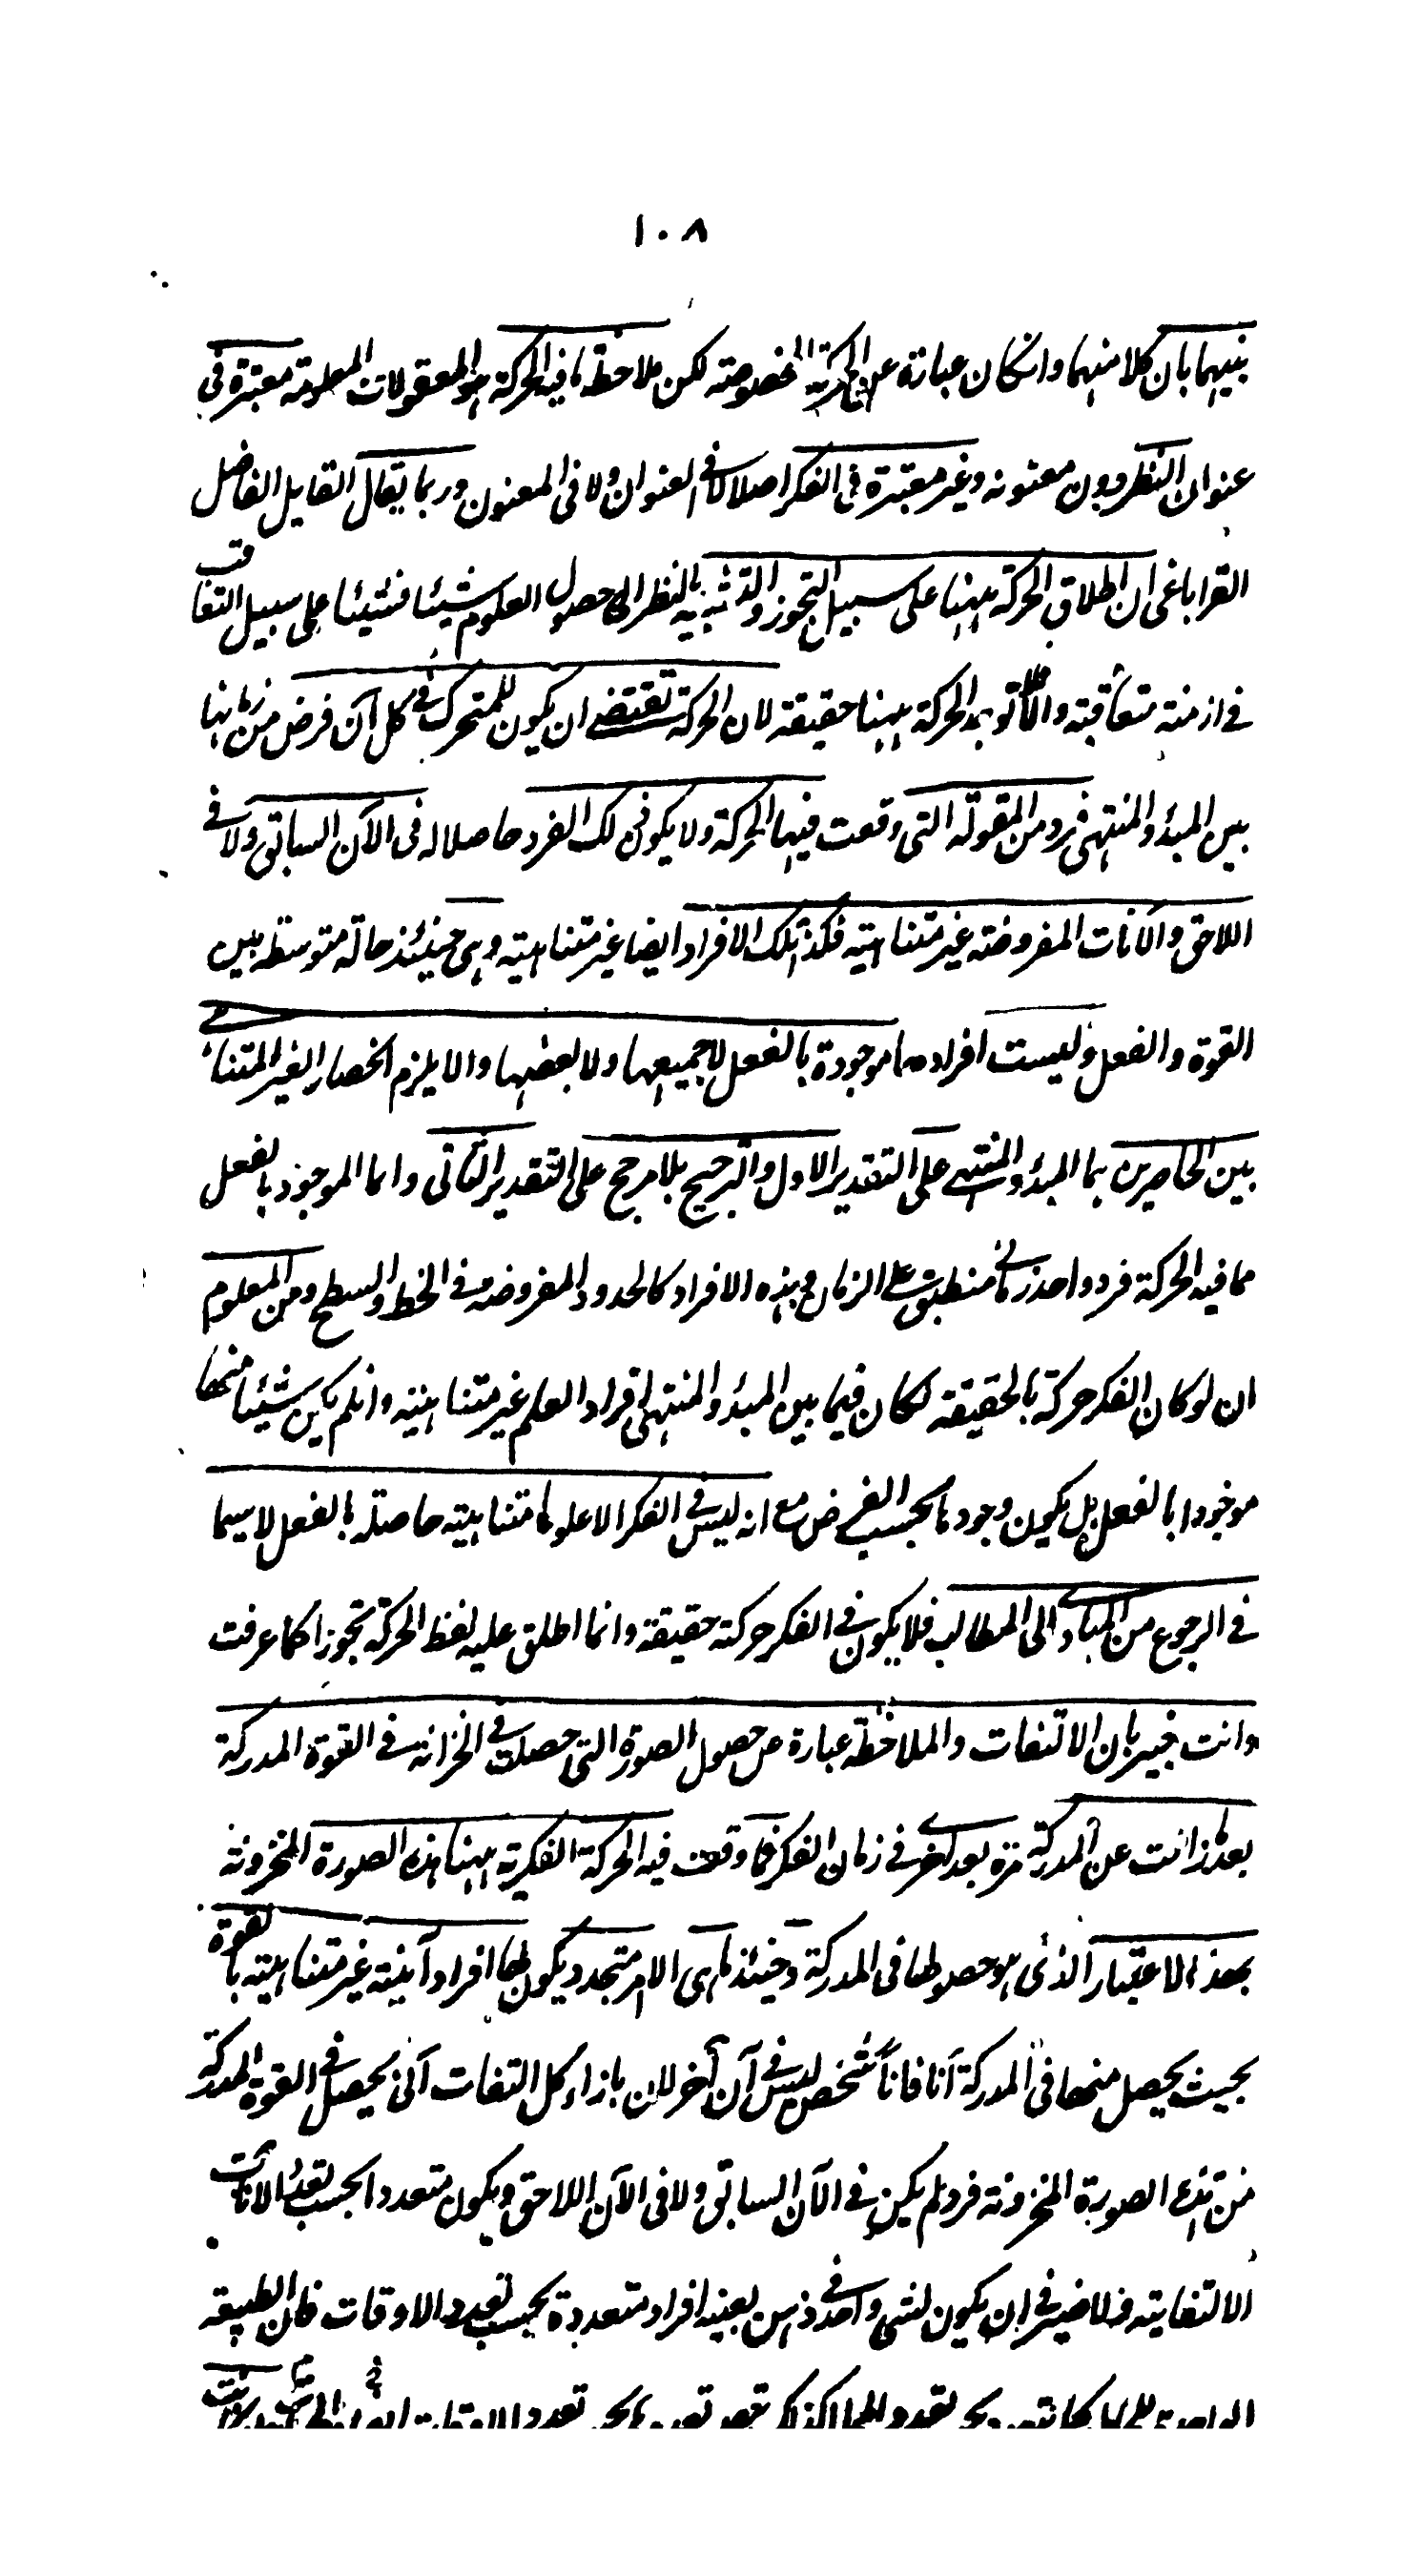 ١٠٨
بينهما بان كلا منهما وانكان عبارة عن الحركة المخصوصة لكن ملاحظة ما فيه الحركة هو المعقولات المعلومة معتبرة فى
عنوان النظر دون معنونه وغير معتبرة فى الفكر اصلا لا فى العنوان ولا فى المعنون وربما يقال القايل الفاضل
القراباغى ان اطلاق الحركة ههنا على سبيل التجوز والتشبيه بالنظر الى حصول العلوم شيئا فشيئا على سبيل التعاقب
فى ازمنة متعاقبة والا توجد الحركة ههنا حقيقة لان الحركة تقتضے ان يكون للمتحرك فى كل آن فرض من زمانها
بين المبدؤ والمنتهى فرد من المقولة التى وقعت فيها الحركة ولا يكون ذلك الفرد حاصلا له فى الآن السابق ولا فى
اللاحق والآنات المفروضة غير متناهية فكذا تلك الافراد ايضا غير متناهية وهى حينئذ حالة متوسطة بين
القوة والفعل وليست افرادها موجودة بالفعل لا جميعها ولا بعضها والا يلزم انحصار الغير المتناهى
بين الحاصرين هما المبدؤ والمنتهے على التقدير الاول والترجيح بلا مرجح على التقدير الثانى وانما الموجود بالفعل
مما فيه الحركة فرد واحد زمانى منطبق على الزمان وهذه الافراد كالحدود المفروضه فى الخط والسطح ومن المعلوم
ان لو كان الفكر حركة بالحقيقة لكان فيما بين المبدؤ والمنتهى افراد العلم غير متناهية وان لم يكن شيئا منها
موجودا بالفعل بل يكون وجودها بحسب الفرض مع انه ليس فى الفكر الا علوما متناهية حاصلة بالفعل لا سيما
فى الرجوع من المبادے الى المطالب فلا يكون فى الفكر حركة حقيقة وانما اطلق عليه لفظ الحركة تجوزا كما عرفت
وانت خبير بان الالتفات والملاحظة عبارة عن حصول الصورة التى حصلت فى الخزانة فى القوة المدركة
بعد ما زالت عن المدركة مرة بعد اخرے فى زمان الفكر فما وقعت فيه الحركة الفكرية ههنا هذه الصورة المخزونة
بهذا الاعتبار الذى هو حصولها فى المدركة وحينئذ ما هى الا امر متجدد يكون لها افراد آنية غير متناهية بالقوة
بحيث يحصل منها فى المدركة آنا فآناً شخص ليس فى آن آخر لان بازاء كل التفات آنى يحصل فى القوة المدركة
من هذه الصورة المخزونة فرد لم يكن فى الآن السابق ولا فى الآن اللاحق ويكون متعددا بحسب تعدد الآنات
الالتفاتية فلا ضير فى ان يكون لشئ واحد فى ذهن بعينه افراد متعددة بحسب تعدد الاوقات فان الطبيعة